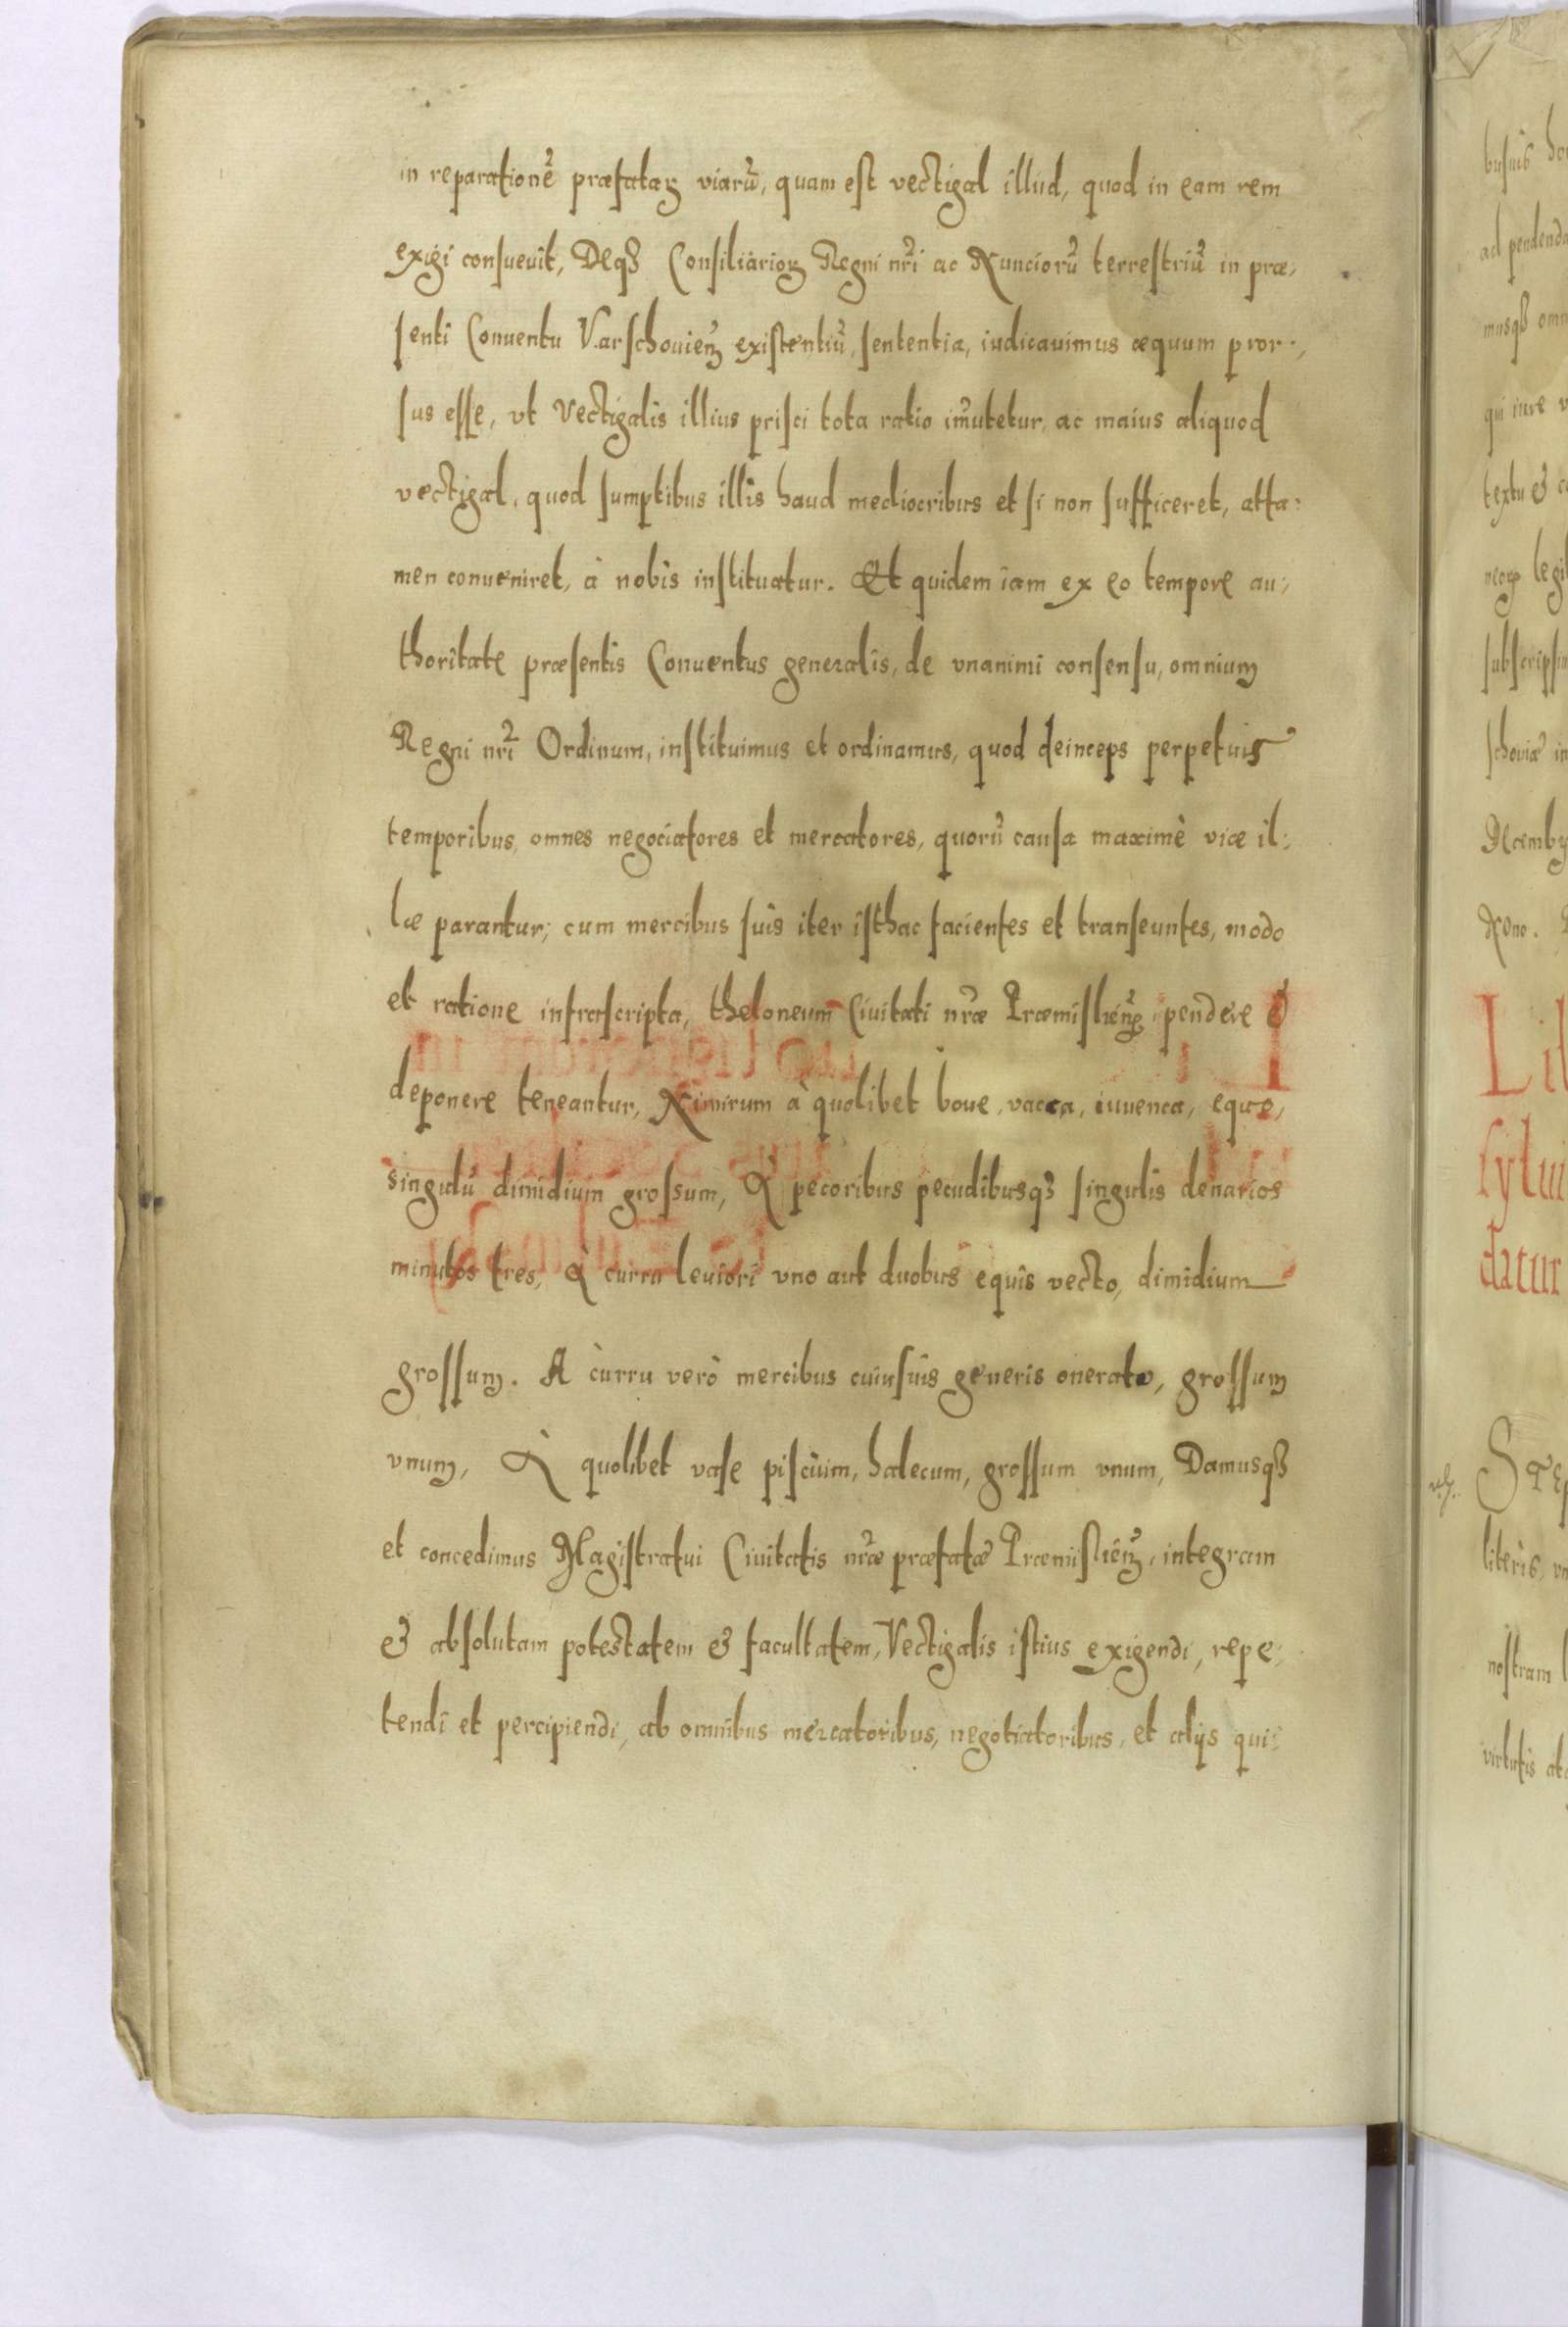 in reparationẽ præfataꝝ viarũ, quam est vectigal illud, quod in eam rem
exigi consueuit, Deqꝫ Consiliarioꝝ Regni nr̃i ac Nunciorũ terrestriũ in præ,
senti Conuentu Varschouieñ existentiũ, sententia, iudicauimus æquum pror,
sus esse, vt Vectigalis illius prisci tota ratio im̃utetur, ac maius aliquod
vectigal, quod sumptibus illis haud mediocribus et si non sufficeret, atta:
men conueniret, à nobis instituatur. Et quidem iam ex eo tempore au:
thoritate præsentis Conuentus generalis, de vnanimi consensu, omnium
Regni nr̃i Ordinum, instituimus et ordinamus, quod deinceps perpetuis
temporibus, omnes negociatores et mercatores, quorũ causa maximè viæ il:
læ parantur; cum mercibus suis iter isthac facientes et transeuntes, modo
et ratione infrascripta, theloneum Ciuitati nr̃æ Præmislieñ pendere &
deponere teneantur, Nimirum à quolibet boue, vacca, iuuenca, equo,
singulũ dimidium grossum, A pecoribus pecudibusqꝫ singulis denarios
minutos tres, A curru leuiori vno aut duobus equis vecto, dimidium
grossum. A curru verò mercibus cuiusuis generis onerato, grossum
vnum, A quolibet vase piscium, halecum, grossum vnum, Damusqꝫ
et concedimus Magistratui Ciuitatis nr̃æ præfatæ Præmislieñ, integram
& absolutam potestatem & facultatem, Vectigalis istius exigendi, repe:
tendi et percipiendi, ab omnibus mercatoribus, negotiatoribus, et alijs qui:
busuis
ad pendend
musqꝫ
qui iure
textu &
legi
subscripsi
schouiæ in
Decemb
Nono.
Lit
sylui
datur
Step
literis,
nostram
virtutis